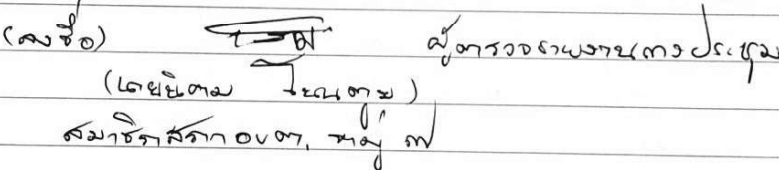 (ลงชื่อ) ผู้ตรวจรายงานการประชุม
(นายนิคม
สมาชิกสภา อบต. หมู่ ๗